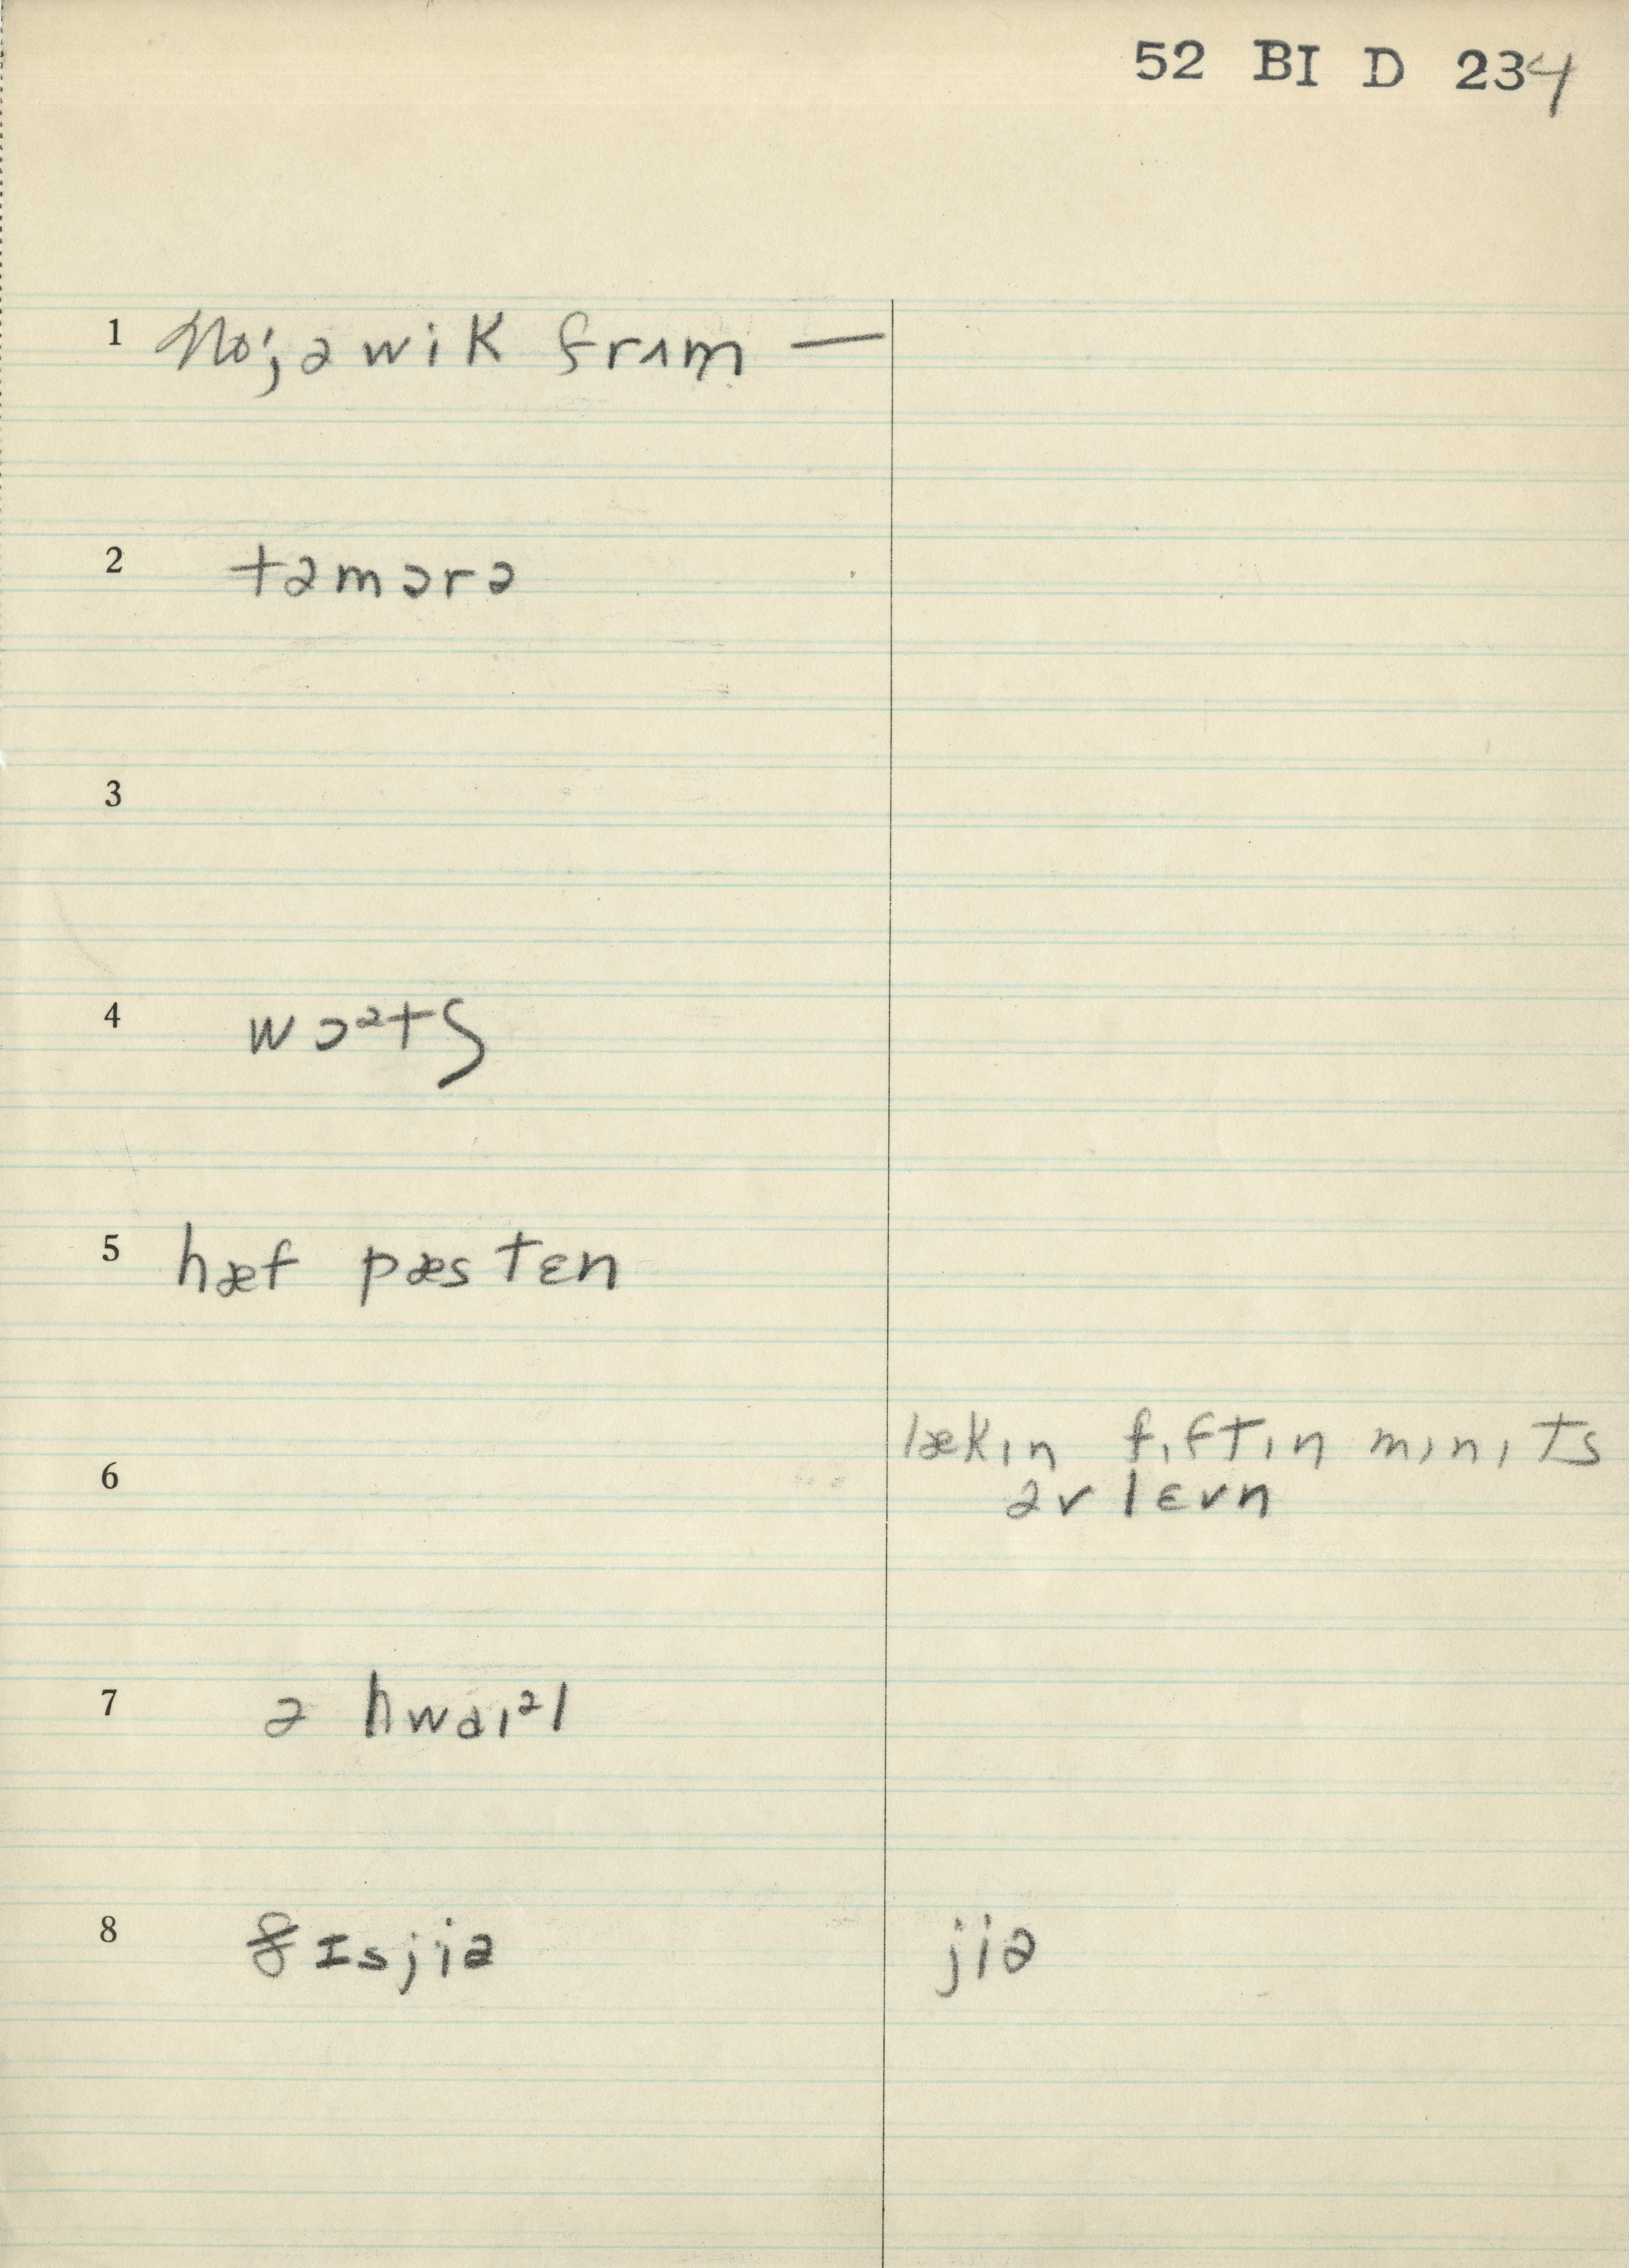 52 BI D 234
1 no; ə wik frʌm —
2 təmɔrə
3
4 wɔᵊtʃ
5 hæf pæs tɛn
6 lækɪn fɪftin mɪnɪts
əv lɛvn
7 ə hwaɪᵊl
8 ðɪsjiə jiə